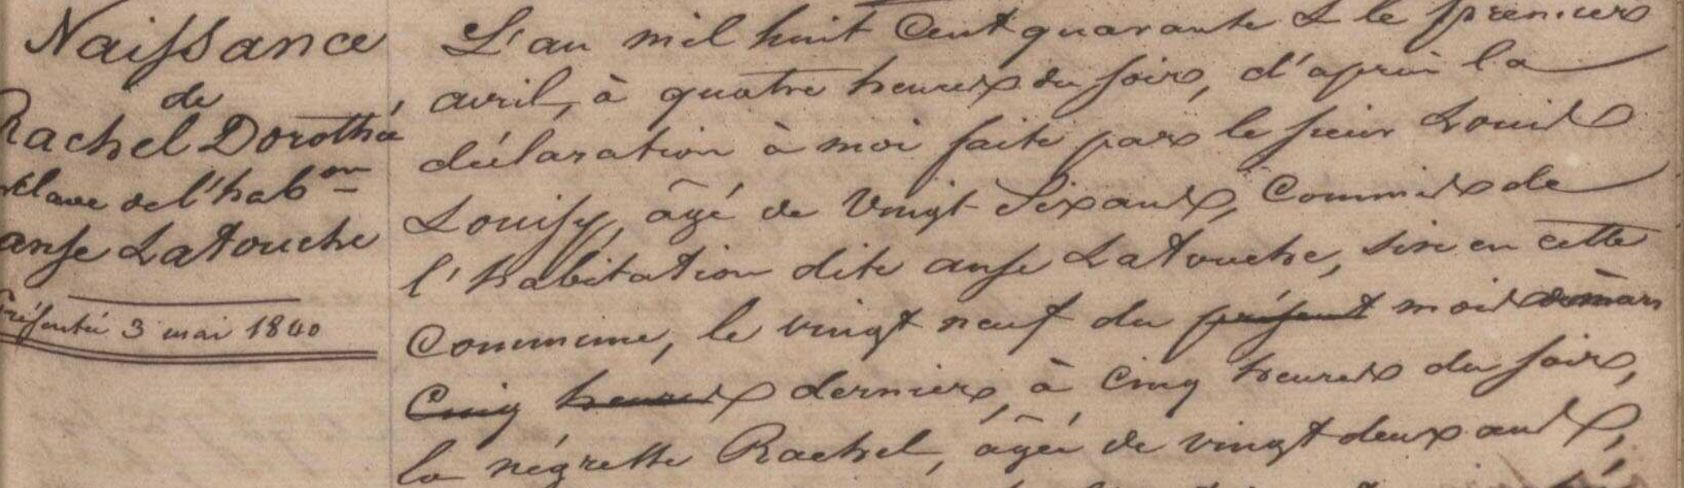 Naissance
de
Rachel Dorothée
esclave de l'hab.on
anse LaTouche
Présentée 3 mai 1840
L'an mil huit Cent quarante & le premier
avril, à quatre heures du soir, d'après la
déclaration à moi faite par le sieur Louis
Louisy, âgé de vingt Six ans, Commis de
l'habitation dite anse LaTouche, sise en cette
Commune, le vingt neuf du présent mois de mars
Cinq heures dernier, à Cinq heures du soir,
la négrette Rachel, âgée de vingt deux ans,